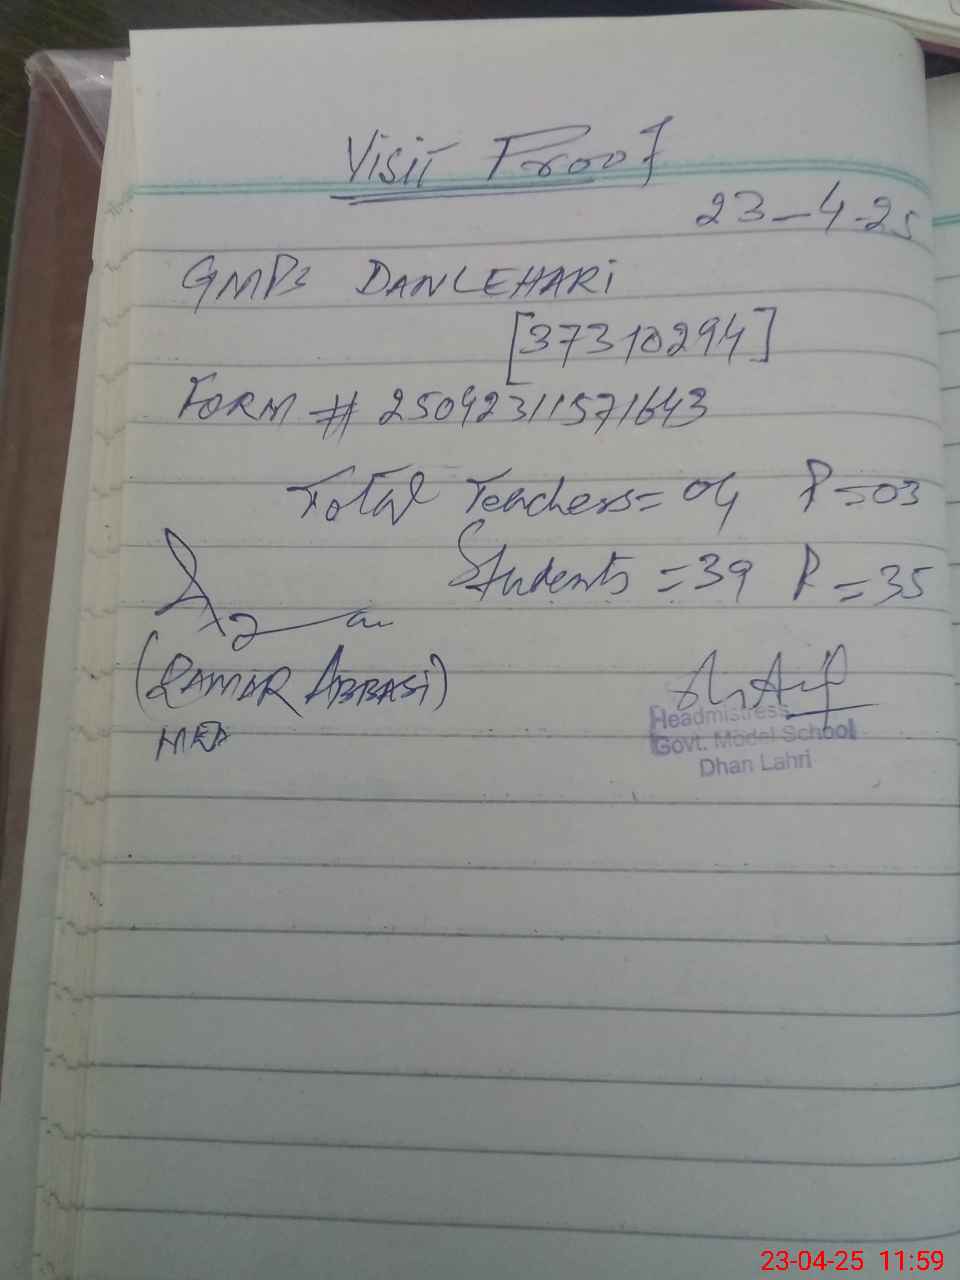 Visit Proof
23-4-25
GMPS DANLEHARI
[37310294]
FORM # 25042311571643
Total Teachers = 04 P = 03
Students = 39 P = 35
(QAMAR ABBASI)
Headmistress
Govt. Model School
Dhan Lahri
23-04-25 11:59